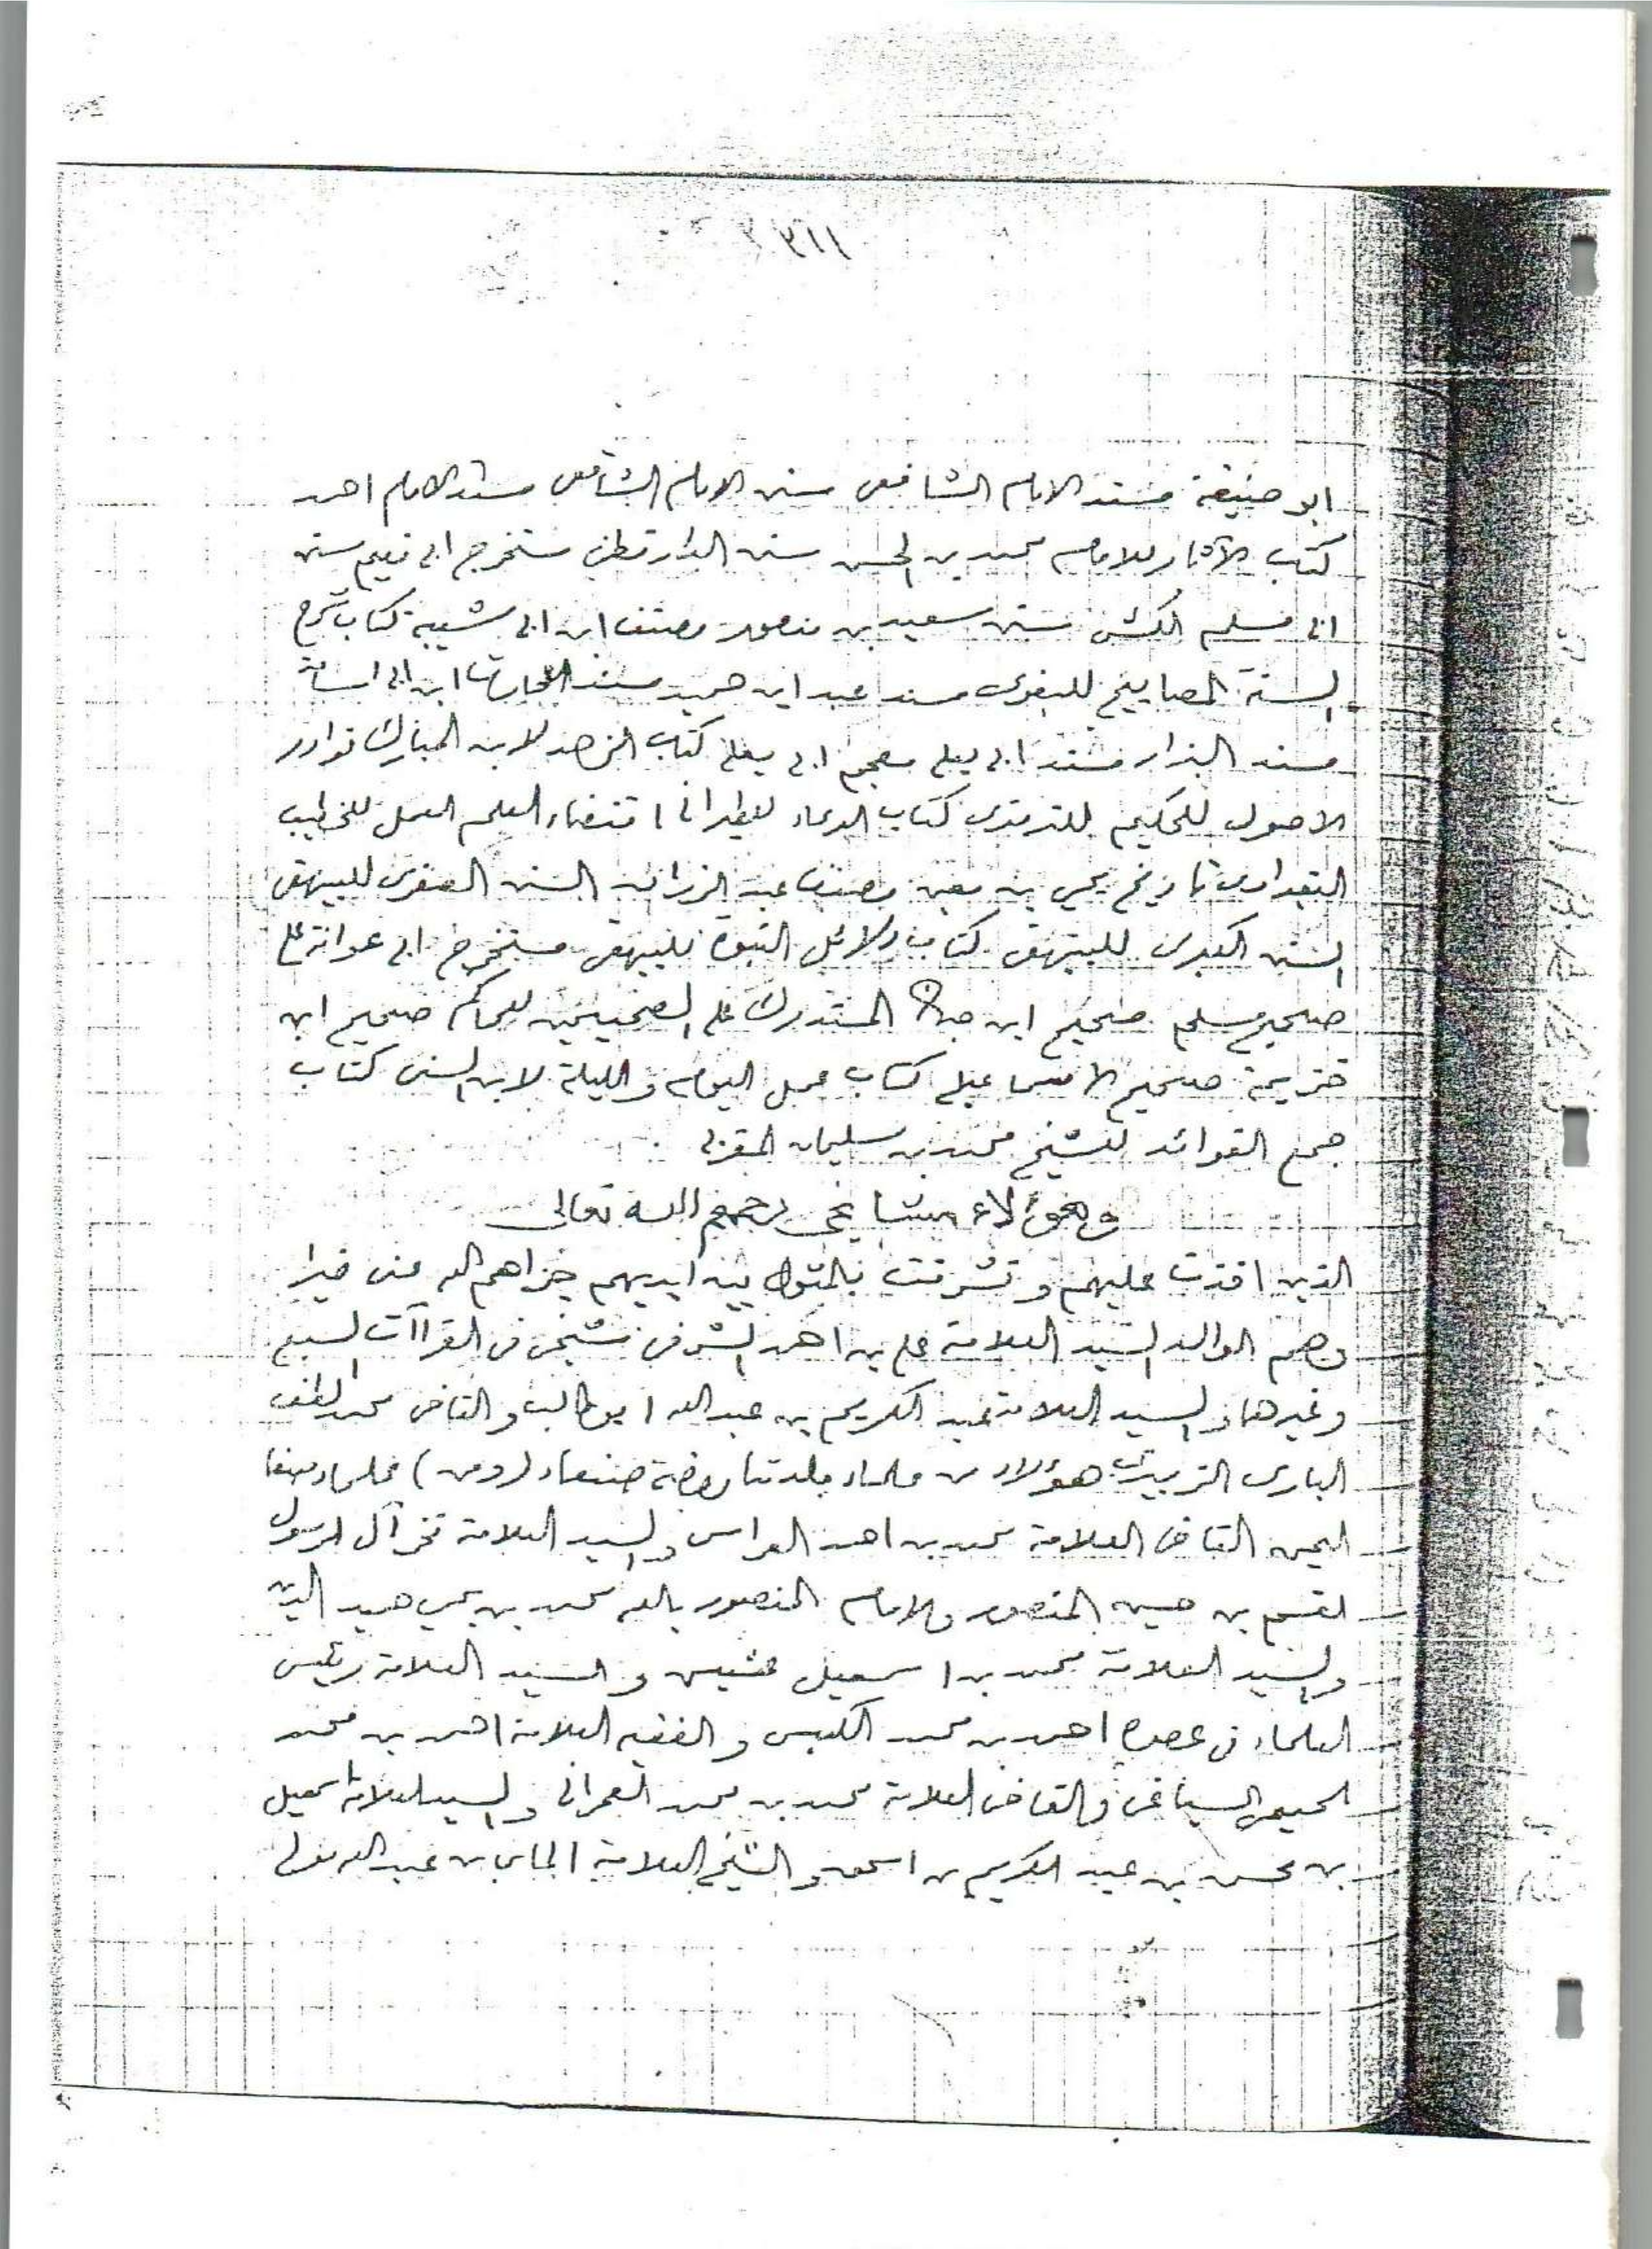 ابو حنيفة مسند الامام الشافعى سنن الامام الشافعى مسند الامام احمد
كتاب الآثار للامام محمد بن الحسن سنن الدارقطنى مستخرج ابى نعيم سنن
ابى مسلم الكشى سنن سعيد بن منصور مصنف ابن ابى شيبة كتاب شرح
السنة المصابيح للبغوى مسند عبد ابن حميد مسند الحارث ابن ابى اسامة
مسند البزار مسند ابى يعلى معجم ابى يعلى كتاب الزهد لابن المبارك نوادر
الاصول للحكيم للترمذى كتاب الدعاء للطبرانى اقتضاء العلم العمل للخطيب
البغدادى تاريخ يحيى بن معين مصنف عبد الرزاق السنن الصغرى للبيهقى
السنن الكبرى للبيهقى كتاب دلائل النبوة للبيهقى مستخرج ابى عوانة على
صحيح مسلم صحيح ابن حبان المستدرك على الصحيحين للحاكم صحيح ابن
خزيمة صحيح الاسماعيلى كتاب عمل اليوم والليلة لابن السنى كتاب
جمع الفوائد للشيخ محمد بن سليمان المغربى
وهؤلاء مشايخى رحمهم الله تعالى
الذين اخذت عليهم وتشرفت بالمثول بين ايديهم جزاهم الله عنى خيرا
وهم الوالد السيد العلامة على بن احمد الشرفى شيخى فى القراآت السبع
وغيرها والسيد العلامة عبد الكريم بن عبد الله ابوطالب والقاضى محمد لطف
البارى الزبيرى هؤلاء من علماء بلدتنا روضة صنعاء (ومن) علماء صنعا
اليمن القاضى العلامة محمد بن احمد العراسى والسيد العلامة فخر آل الرسول
القسم بن حسين المنصور والامام المنصور بالله محمد بن يحيى حميد الدين
والسيد العلامة محمد بن اسمعيل عشيش والسيد العلامة رئيس
العلماء فى عصره احمد بن محمد الكبسى والفقيه العلامة احمد بن محمد
السياغى والقاضى العلامة محمد بن محمد العمرانى والسيد العلامة اسمعيل
بن محسن بن عبد الكريم بن اسحق والشيخ العلامة الماس بن عبد الله مولى